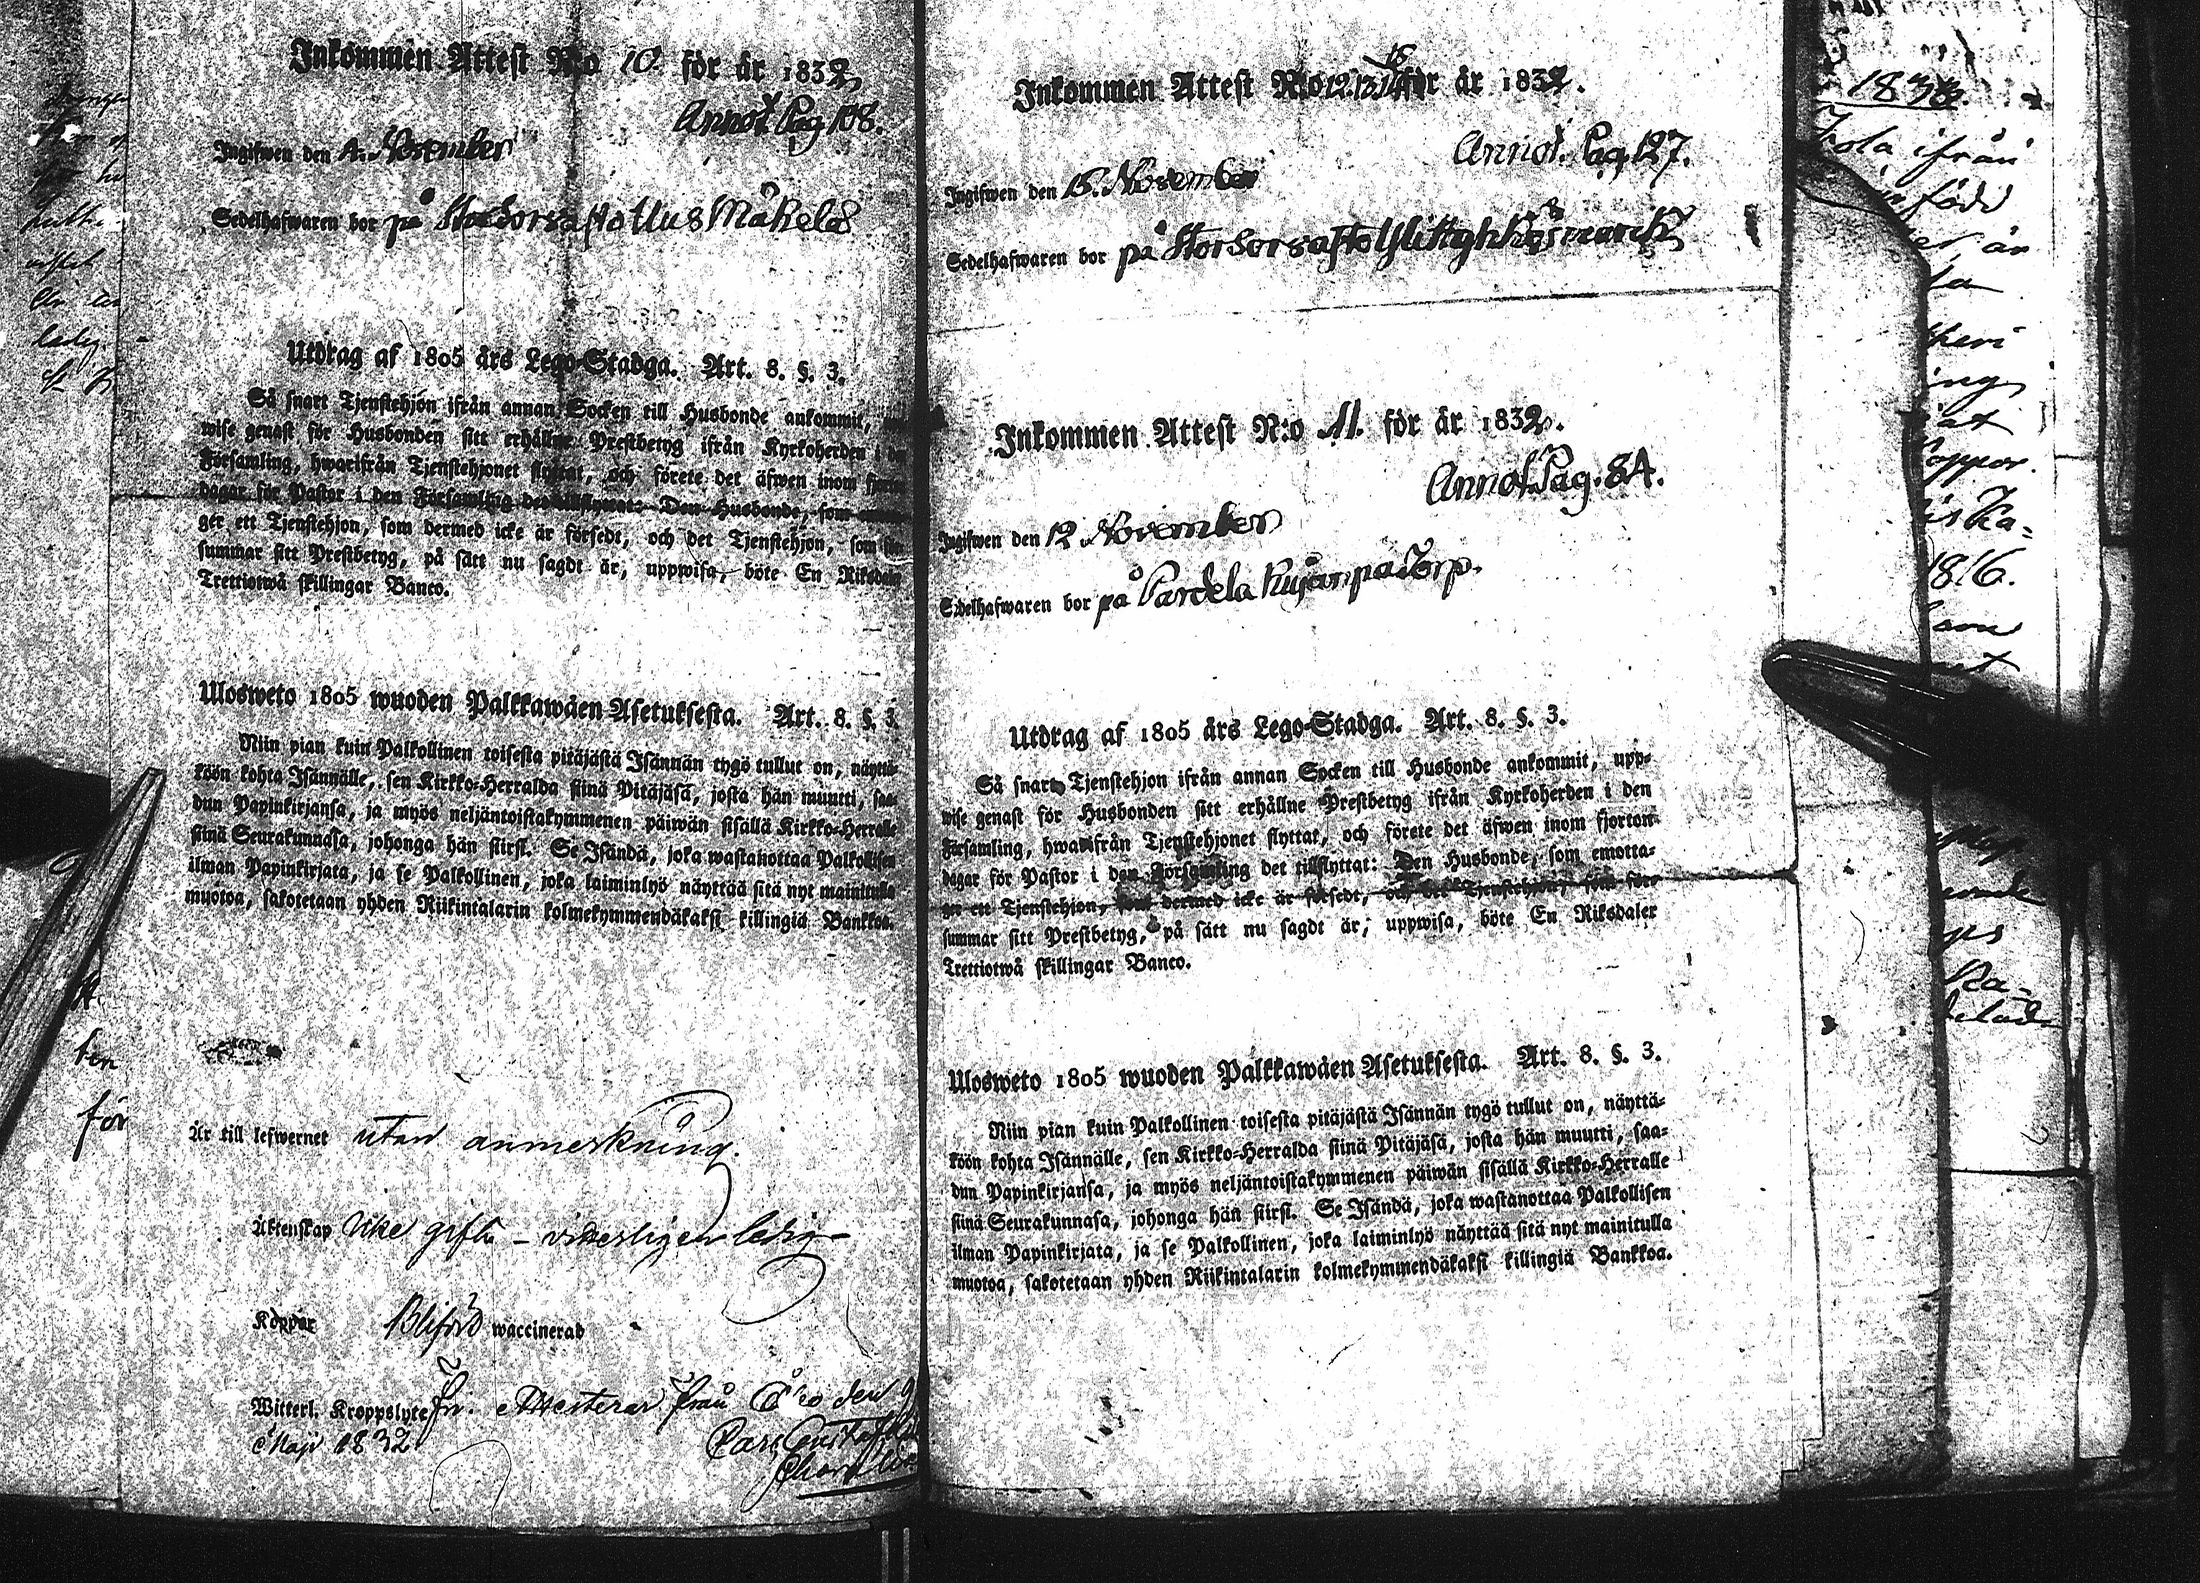 Inkommen Attest N:o 10. för år 1832
Annot. Pag. 108.
Ingifwen den 4. November
Sedelhafwaren bor på Storsorsasto Uus Mäkelä
Utdrag af 1805 års Lego-Stadga. Art. 8. §. 3.
Så snart Tjenstehjon ifrån annan Socken till Husbonde ankommit,
wise genast för Husbonden sitt erhållne Prestbetyg ifrån Kyrkoherden i
Församling, hwarifrån Tjenstehjonet flyttat, och förete det äfwen inom
dagar för Pastor i den Församling det tillflyttat: Den Husbonde, som
ger ett Tjenstehjon, som dermed icke är försedt, och det Tjenstehjon, som
summar sitt Prestbetyg, på sätt nu sagdt är, uppwisa, böte En Riksdaler
Trettiotwå skillingar Banco.
Ulosweto 1805 wuoden Palkkawäen Asetuksesta. Art. 8. §. 3.
Niin pian kuin Palkollinen toisesta pitäjästä Isännän tygö tullut on, näyttä-
köön kohta Isännälle, sen Kirkko-Herralda siinä Pitäjäsä, josta hän muutti, saa-
dun Papinkirjansa, ja myös neljäntoistakymmenen päiwän sisällä Kirkko-Herralle
siinä Seurakunnasa, johonga hän siirsi. Se Isändä, joka wastanottaa Palkollisen
ilman Papinkirjata, ja se Palkollinen, joka laiminlyö näyttää sitä nyt mainitulla
muotoa, sakotetaan yhden Riikintalarin kolmekymmendäkaksi killingiä Bankkoa.
Är till lefwernet utan anmerkning.
Äktenskap icke gift –
Koppor waccinerad
Witterl. Kroppslyte fri. Attesterar från den 9
Maji 1832
Carl Gustaf
Inkommen Attest N:o 12. 13. 14. 15 för år 1832.
Annot. Pag. 127.
Ingifwen den 15. November
Sedelhafwaren bor på Storsorsasto
Inkommen Attest N:o 11. för år 1832.
Annot. Pag. 84.
Ingifwen den 12 November
Sedelhafwaren bor på Pardela Kujanpä Torp.
Utdrag af 1805 års Lego-Stadga. Art. 8. §. 3.
Så snart Tjenstehjon ifrån annan Socken till Husbonde ankommit, upp-
wise genast för Husbonden sitt erhållne Prestbetyg ifrån Kyrkoherden i den
Församling, hwarifrån Tjenstehjonet flyttat, och förete det äfwen inom fjorton
dagar för Pastor i den Församling det tillflyttat: Den Husbonde, som emotta-
ger ett Tjenstehjon, som dermed icke är försedt, och det Tjenstehjon, som för-
summar sitt Prestbetyg, på sätt nu sagdt är, uppwisa, böte En Riksdaler
Trettiotwå skillingar Banco.
Ulosweto 1805 wuoden Palkkawäen Asetuksesta. Art. 8. §. 3.
Niin pian kuin Palkollinen toisesta pitäjästä Isännän tygö tullut on, näyttä-
köön kohta Isännälle, sen Kirkko-Herralda siinä Pitäjäsä, josta hän muutti, saa-
dun Papinkirjansa, ja myös neljäntoistakymmenen päiwän sisällä Kirkko-Herralle
siinä Seurakunnasa, johonga hän siirsi. Se Isändä, joka wastanottaa Palkollisen
ilman Papinkirjata, ja se Palkollinen, joka laiminlyö näyttää sitä nyt mainitulla
muotoa, sakotetaan yhden Riikintalarin kolmekymmendäkaksi killingiä Bankkoa.
1833.
ifrån
född
är
1816.